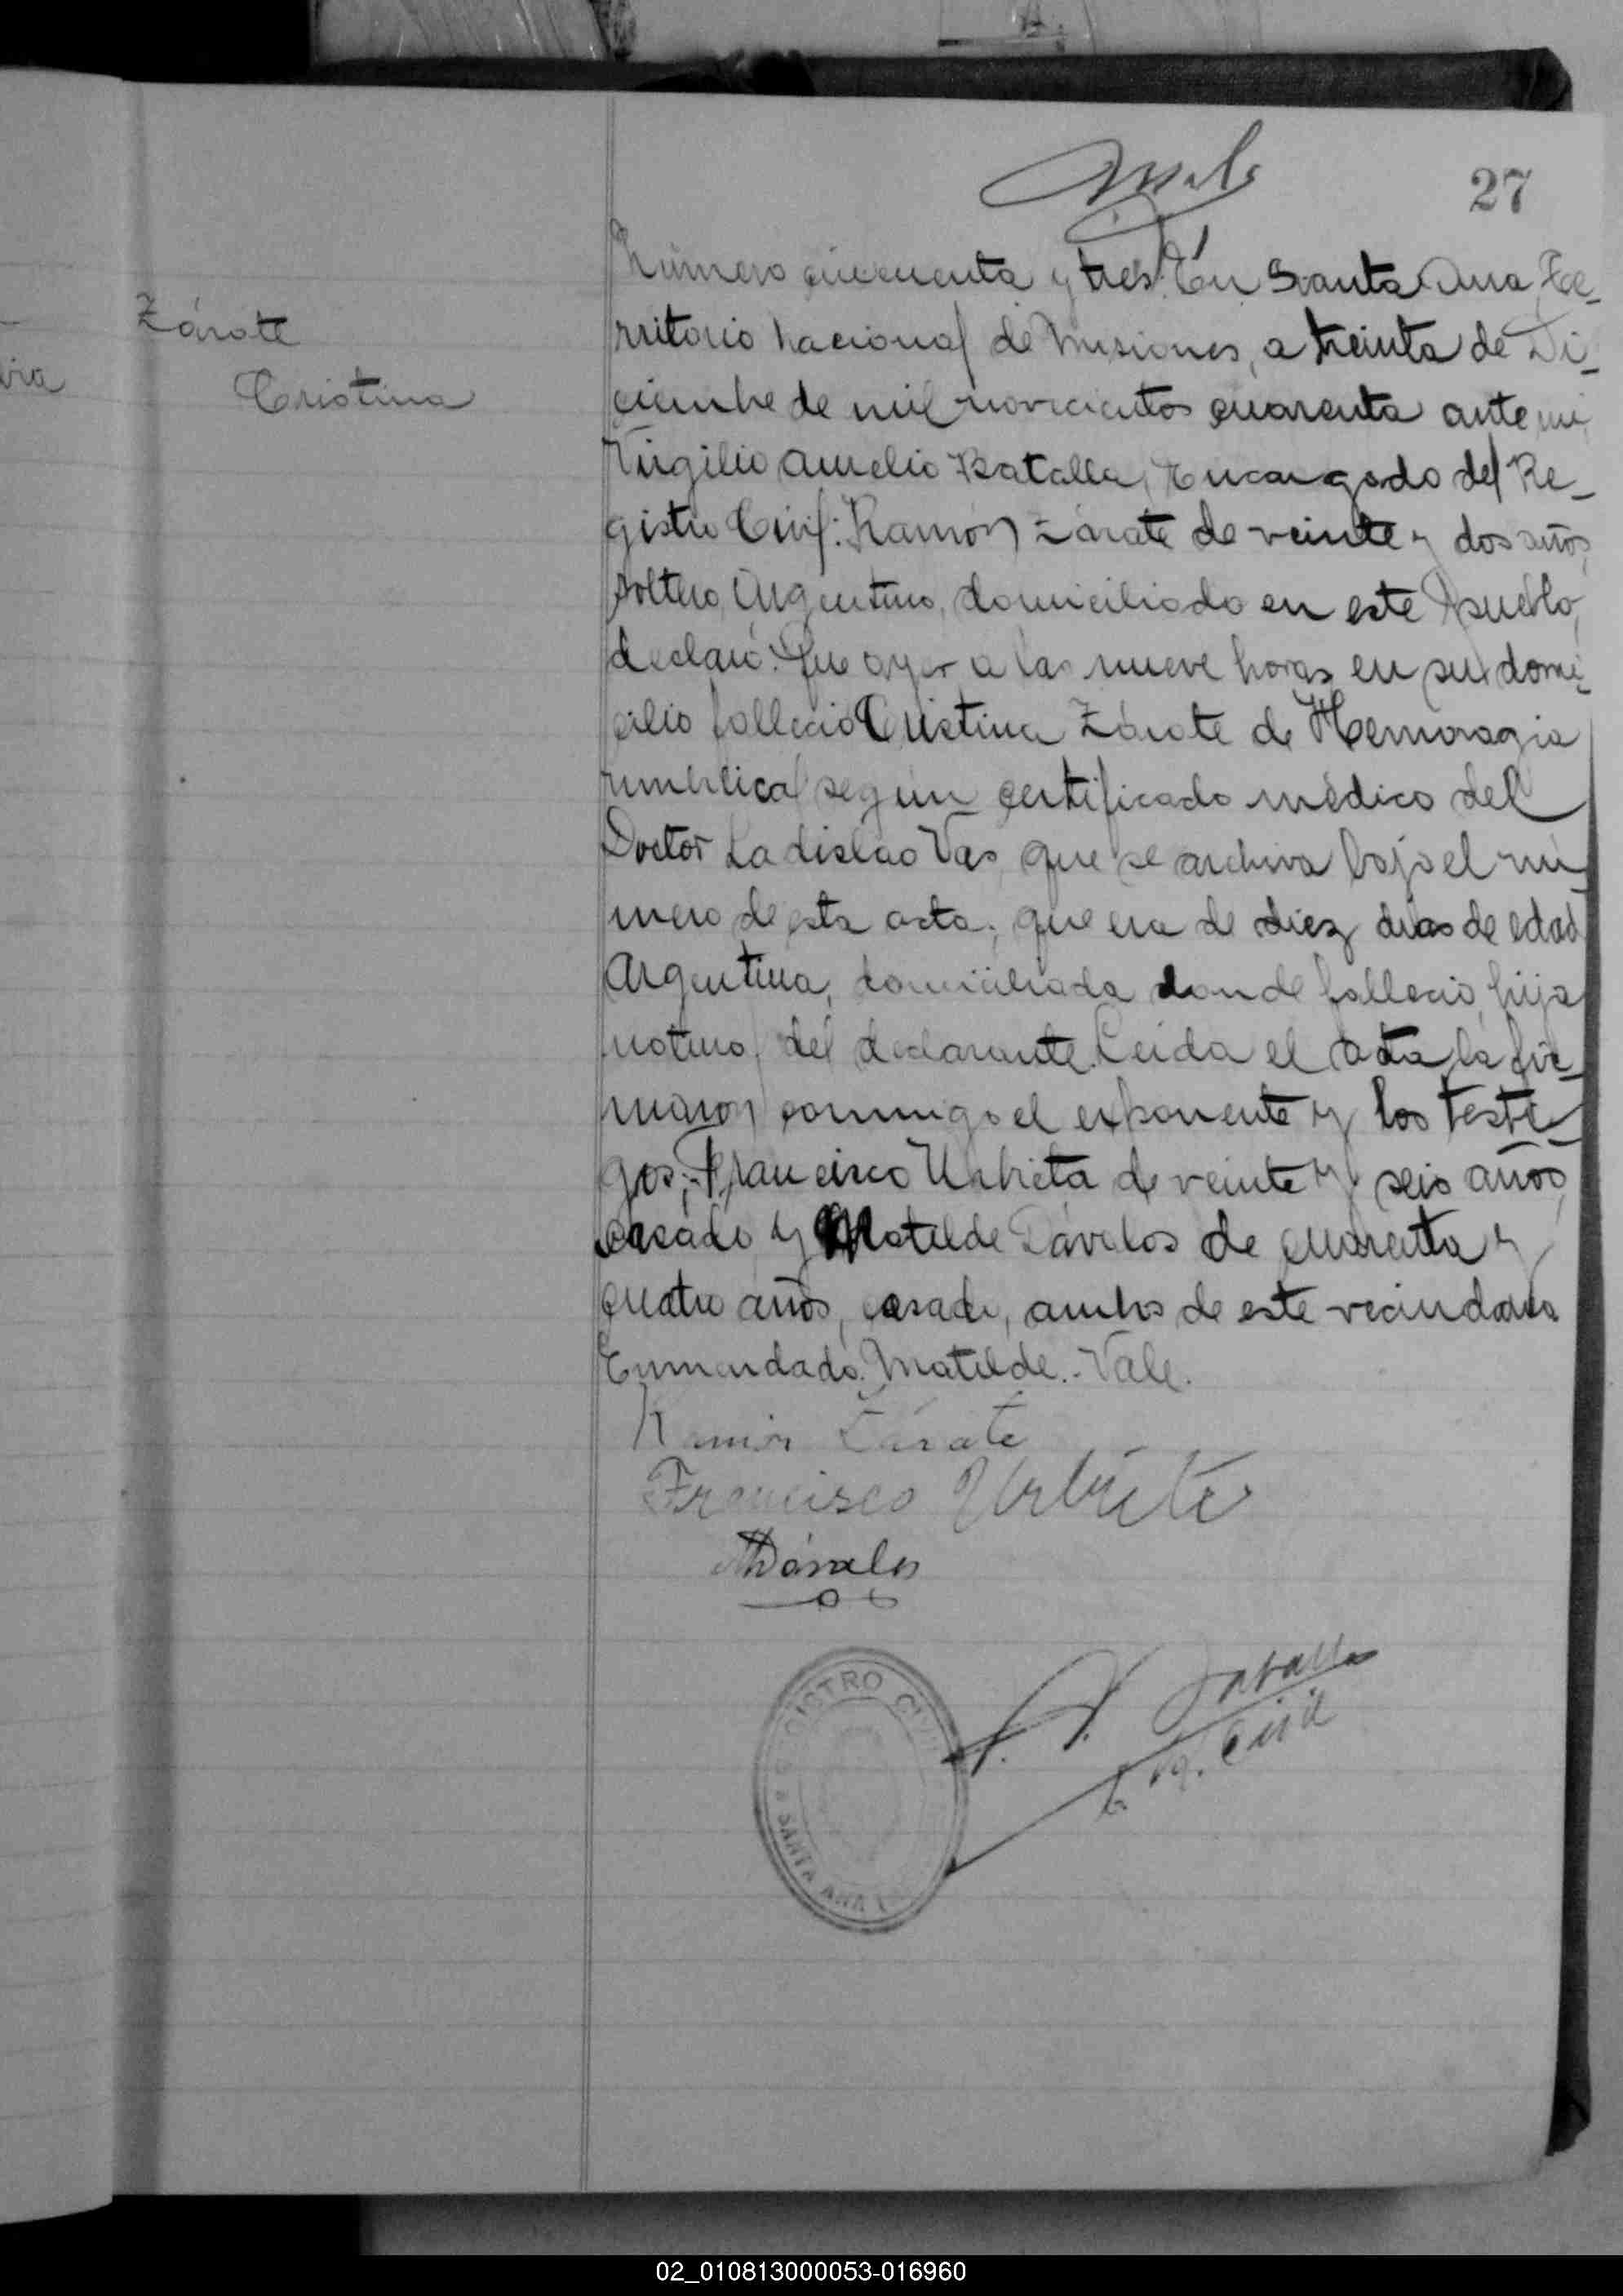 27
Zárate
Cristina
Número cincuenta y tres. En Santa Ana, Te-
rritorio nacional de Misiones, a treinta de Di-
ciembre de mil novecientos cuarenta ante mi,
Virgilio Aurelio Batalla, Encargado del Re-
gistro Civil: Ramón Zárate de veinte y dos años,
soltero, Argentino, domiciliado en este Pueblo,
declaró: Que ayer a las nueve horas en su domi-
cilio falleció Cristina Zárate de Hemoragia
umbilical según certificado médico del
Doctor Ladislao Vas, que se archiva bajo el nú-
mero de esta acta; que era de diez días de edad
Argentina, domiciliada donde falleció, hija
natural del declarante. Leida el acta la fir-
maron conmigo el exponente y los testi-
gos; Francisco Urbieta de veinte y seis años,
casado y Matilde Dávalos de cuarenta y
cuatro años, casado, ambos de este vecindario
Enmendado. Matilde.- Vale.
Ramón Zárate
Francisco Urbieta
MDávalos
REGISTRO CIVIL
SANTA ANA
02_010813000053-016960